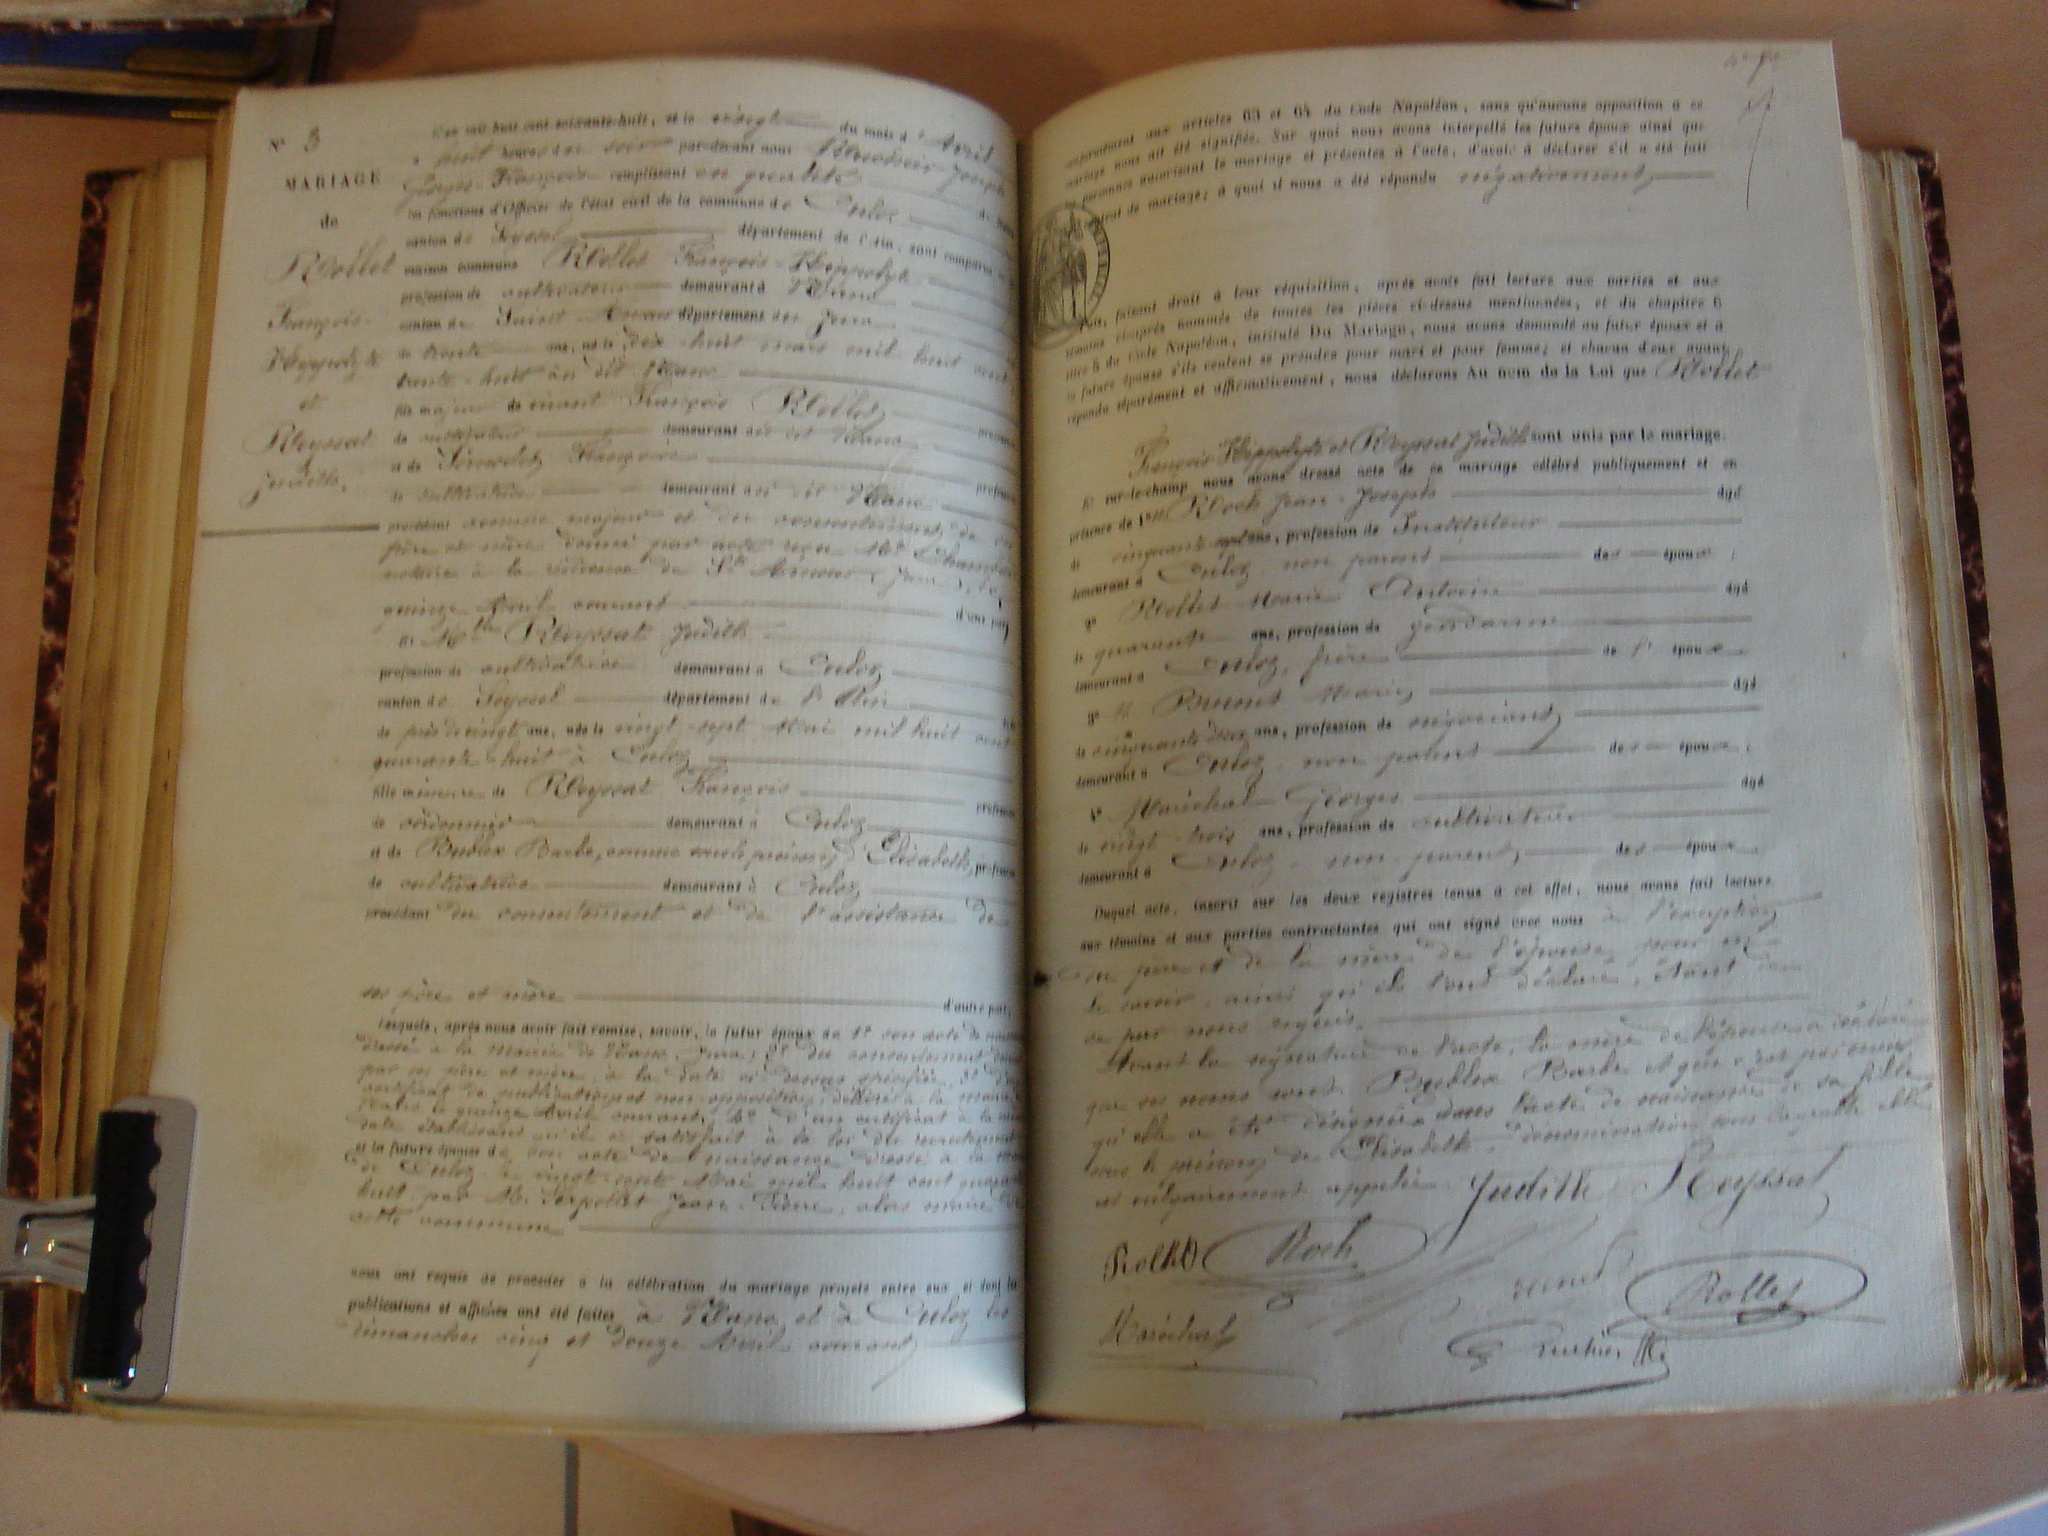 N° 3
MARIAGE
de
Rollet
François-
Hippolyte
et
Reyssat
Judith.
L'an mil huit cent soixante-huit, et le vingt du mois d'Avril
à huit heures du soir par-devant nous Joseph
François remplissant en qualité de
les fonctions d'Officier de l'état civil de la commune de Culoz
canton de Seyssel département de l'Ain, sont comparus
maison commune Rollet François-Hippolyte
profession de cultivateur demeurant à
canton de Saint-Amour département du Jura
de trente ans, né le dix-huit mars mil huit cent
trente-huit au dit
fils majeur de vivant François Rollet
de cultivateur demeurant au dit
et de Françoise
de cultivatrice demeurant au dit
procédant comme majeur et du consentement de ses
père et mère donné par acte reçu Me
notaire à la résidence de St Amour (Jura), le
quinze Avril courant d'une part
Et Mlle Reyssat Judith
profession de cultivatrice demeurant à Culoz
canton de Seyssel département de l'Ain
de près de vingt ans, née le vingt-sept Mai mil huit cent
quarante-huit à Culoz
fille mineure de Reyssat François
de cordonnier demeurant à Culoz
et de Barbe, connue sous le prénom d'Elisabeth,
de cultivatrice demeurant à Culoz
procédant du consentement et de l'assistance de
ses père et mère d'autre part,
Lesquels, après nous avoir fait remise, savoir, le futur époux de 1° son acte de
dressé à la mairie de (Jura) 2° du consentement
par ses père et mère, à la date ci-dessus spécifiée, 3° d'un
certificat de publication et non opposition, délivré à la mairie
le quinze Avril courant, 4° d'un certificat à la même
date établissant qu'il a satisfait à la loi du recrutement
et la future épouse de son acte de naissance dressé à la
de Culoz le vingt-sept Mai mil huit cent quarante
huit par M. Serpollet Jean-Pierre, alors maire de
cette commune
nous ont requis de procéder à la célébration du mariage projeté entre eux et dont les
publications et affiches ont été faites à et à Culoz les
dimanches cinq et douze Avril courant
conformément aux articles 63 et 64 du Code Napoléon, sans qu'aucune opposition à ce
mariage nous ait été signifiée. Sur quoi nous avons interpellé les futurs époux ainsi que
les personnes autorisant le mariage et présentes à l'acte, d'avoir à déclarer s'il a été fait
contrat de mariage; à quoi il nous a été répondu négativement,
Puis, faisant droit à leur réquisition, après avoir fait lecture aux parties et aux
témoins ci-après nommés de toutes les pièces ci-dessus mentionnées, et du chapitre 6
titre 5 du Code Napoléon, intitulé Du Mariage, nous avons demandé au futur époux et à
la future épouse s'ils veulent se prendre pour mari et pour femme; et chacun d'eux ayant
répondu séparément et affirmativement, nous déclarons Au nom de la Loi que Rollet
François Hippolyte et Reyssat Judith sont unis par le mariage.
Et sur-le-champ nous avons dressé acte de ce mariage célébré publiquement et en
présence de 1° M. Roch Jean-Joseph âgé
de cinquante sept ans, profession de Instituteur
demeurant à Culoz non parent des époux;
2° Rollet Marie Antoine âgé
de quarante ans, profession de gendarme
demeurant à Culoz, frère de l'époux
3° M. Brunet Marie âgé
de cinquante deux ans, profession de négociant
demeurant à Culoz non parent des époux;
4° Maréchal Georges âgé
de vingt-trois ans, profession de cultivateur
demeurant à Culoz non parent, des époux.
Duquel acte, inscrit sur les deux registres tenus à cet effet, nous avons fait lecture
aux témoins et aux parties contractantes qui ont signé avec nous à l'exception
du père et de la mère de l'épouse, pour ne
le savoir, ainsi qu'ils l'ont déclaré, étant de
ce par nous requis.
Avant la signature de l'acte, la mère de l'épouse a déclaré
que ses noms sont Barbe et que c'est par erreur
qu'elle a été désignée dans l'acte de naissance de sa fille
sous le prénom de Elisabeth, dénomination sous laquelle elle
est vulgairement appelée
Judith Reyssat
Roch
Rollet
Maréchal